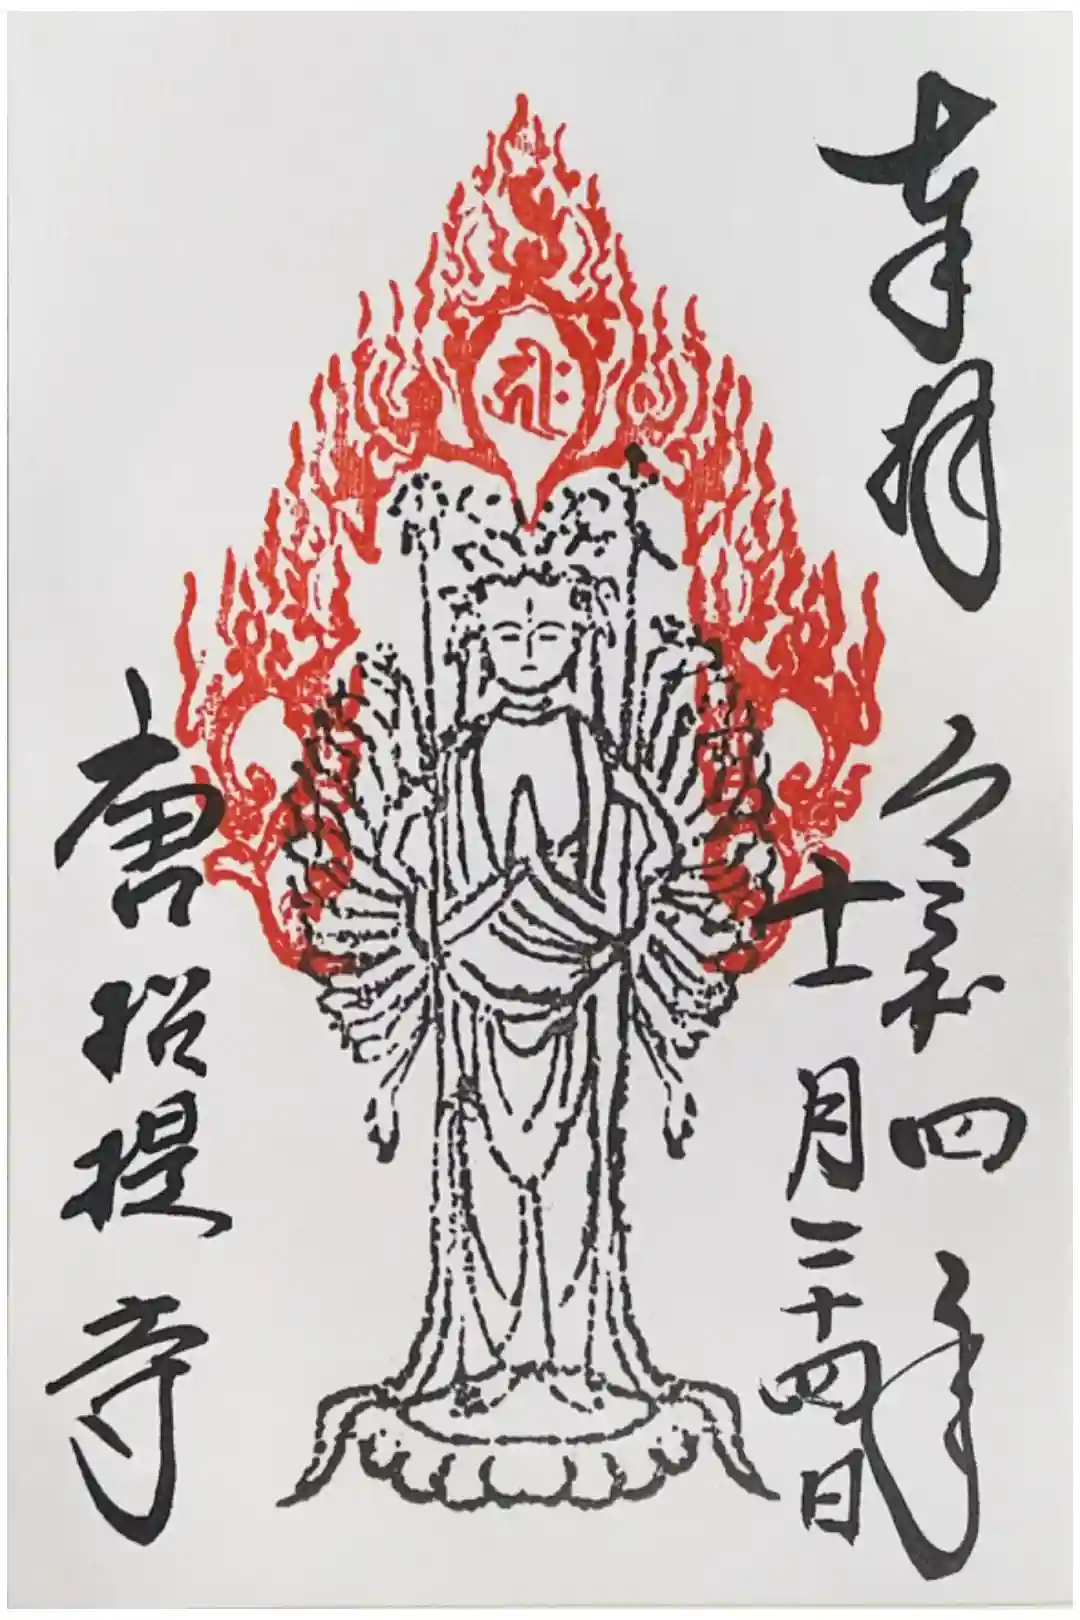 奉拝 令和四年
十一月二十四日
唐招提寺